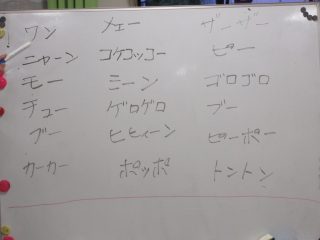 ワン メェー ザーザー
ニャーン コケコッコー ピー
モー ミーン ゴロゴロ
チュー ゲロゲロ ブー
ブー ヒヒィーン ピーポー
カーカー ポッポ トントン